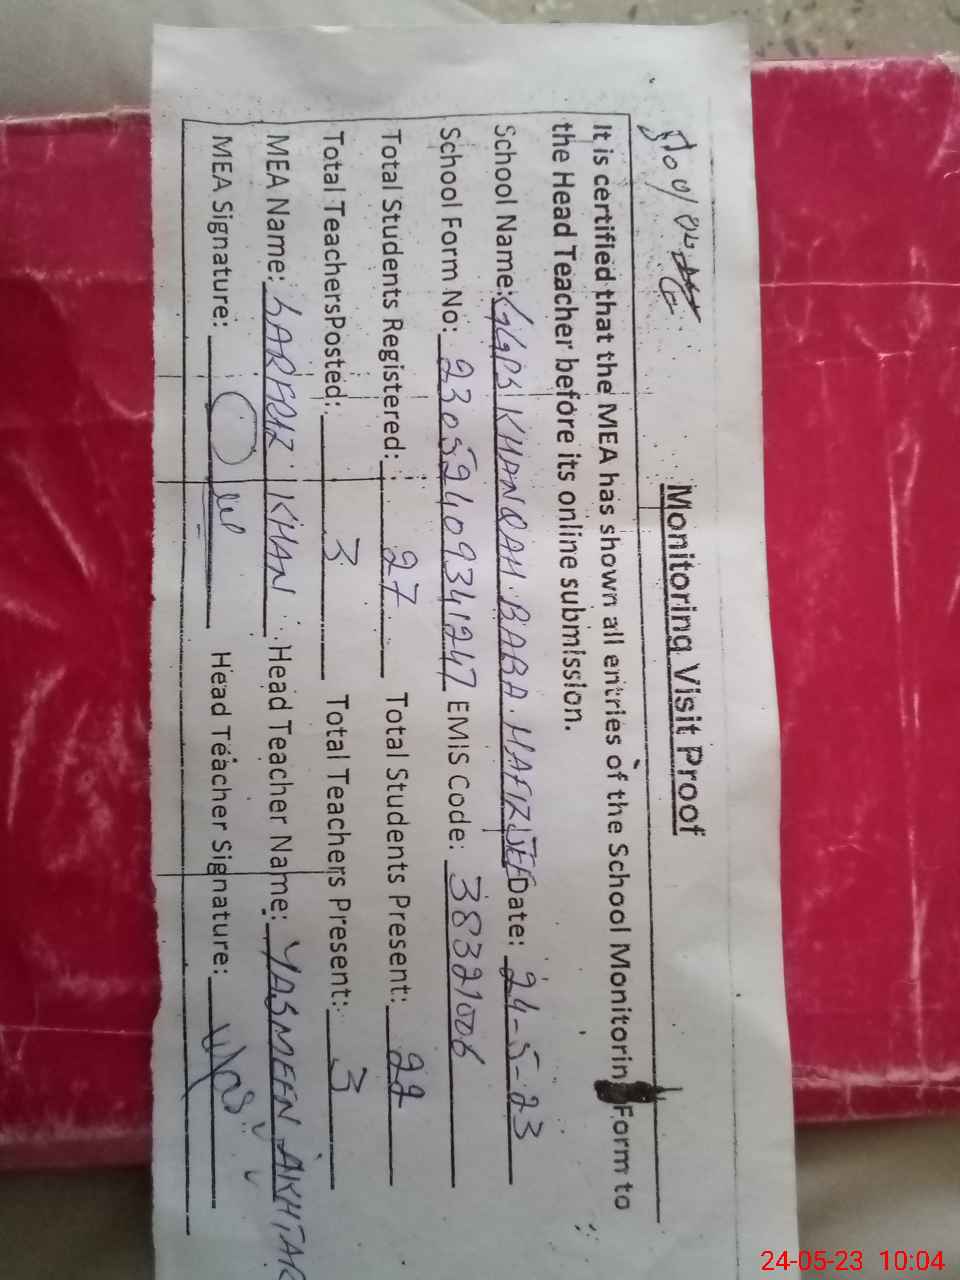 Monitoring Visit Proof
It is certified that the MEA has shown all entries of the School Monitorin Form to
the Head Teacher before its online submission.
School Name: GGPS KHANQAH BABA HAFIZ JEE Date: 24-5-23
School Form No: 23052409341247 EMIS Code: 38321006
Total Students Registered: 27 Total Students Present: 22
Total TeachersPosted: 3 Total Teachers Present: 3
MEA Name: SARFRAZ KHAN Head Teacher Name: YASMEEN AKHTAR
MEA Signature: Head Teacher Signature:
24-05-23 10:04